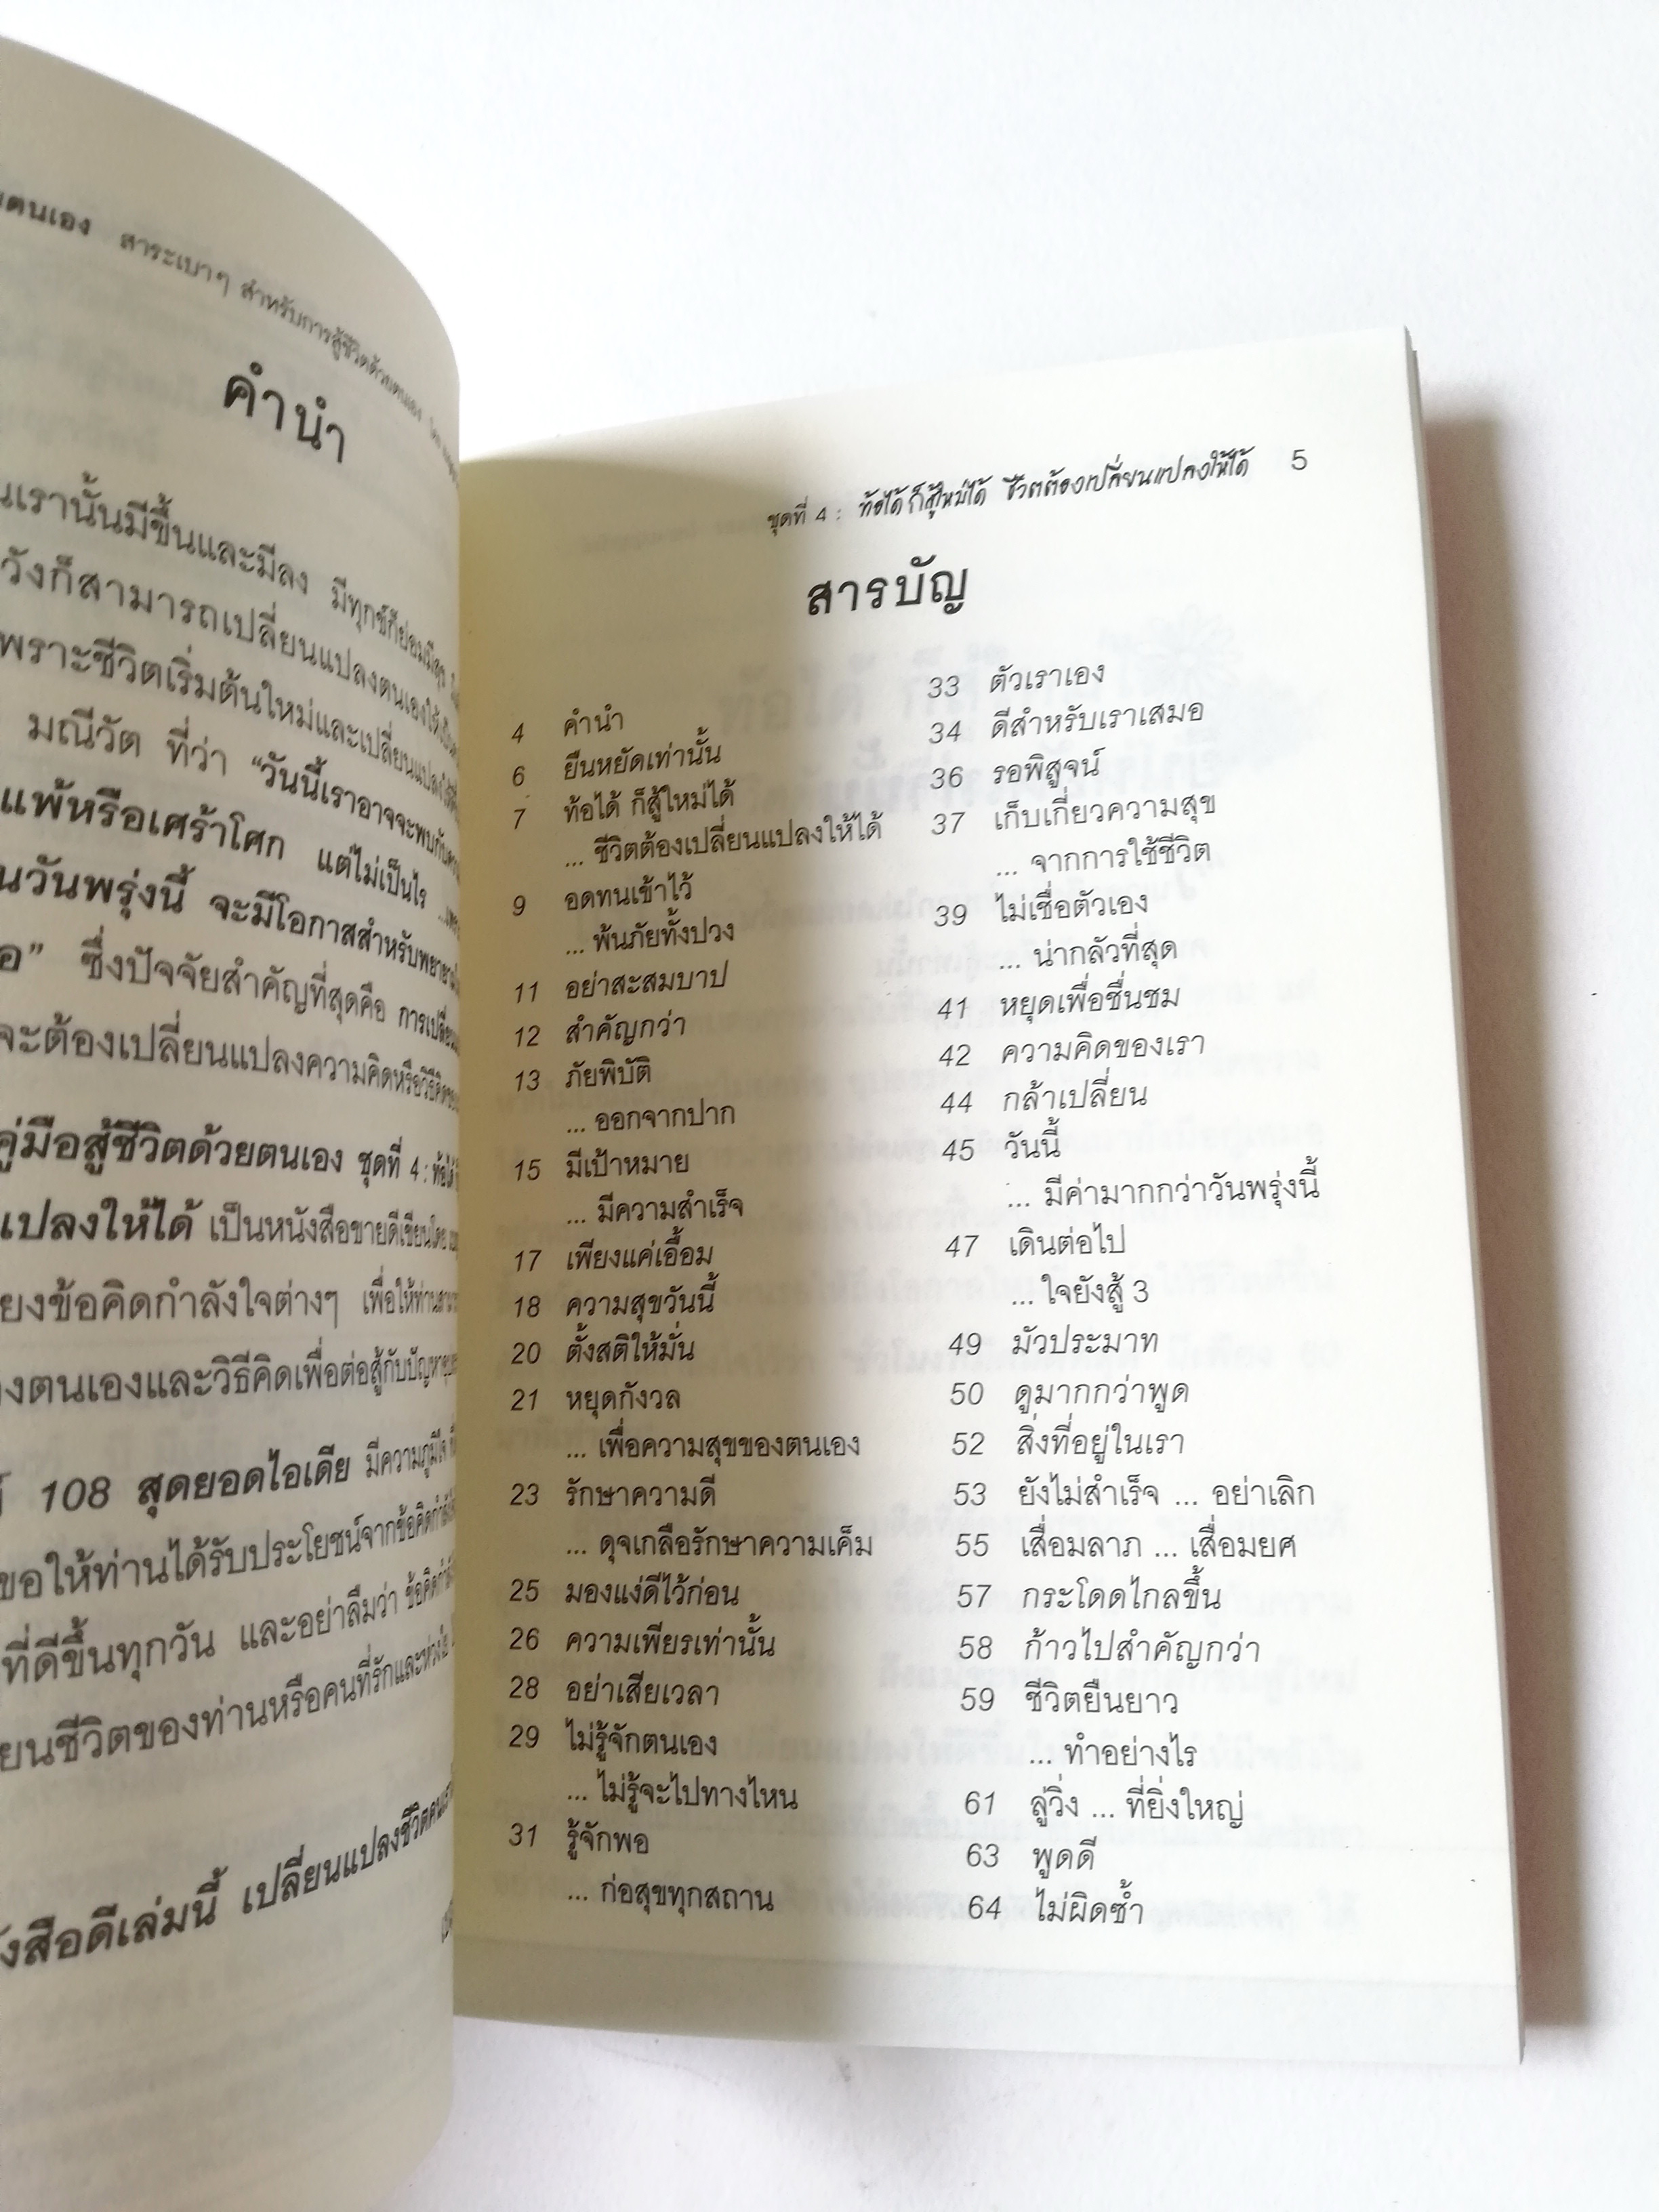 ตนเอง สาระเบาๆ สำหรับการสู้ชีวิตด้วยตนเอง
คำนำ
เรานั้นมีขึ้นและมีลง มีทุกข์ก็ย่อมมีสุข
วังก็สามารถเปลี่ยนแปลงตนเองให้
พราะชีวิตเริ่มต้นใหม่และเปลี่ยนแปลงได้
มณีวัต ที่ว่า “วันนี้เราอาจจะพบกับ
แพ้หรือเศร้าโศก แต่ไม่เป็นไร
นวันพรุ่งนี้ จะมีโอกาสสำหรับพยายาม
อ” ซึ่งปัจจัยสำคัญที่สุดคือ การเปลี่ยน
จะต้องเปลี่ยนแปลงความคิดหรือวิธีคิดของ
คู่มือสู้ชีวิตด้วยตนเอง ชุดที่ 4 : ท้อได้
แปลงให้ได้ เป็นหนังสือขายดีเขียนโดย
ยงข้อคิดกำลังใจต่างๆ เพื่อให้ท่าน
งตนเองและวิธีคิดเพื่อต่อสู้กับปัญหา
108 สุดยอดไอเดีย มีความภูมิใจ
ขอให้ท่านได้รับประโยชน์จากข้อคิด
ที่ดีขึ้นทุกวัน และอย่าลืมว่า ข้อคิด
ยนชีวิตของท่านหรือคนที่รักและห่วง
ังสือดีเล่มนี้ เปลี่ยนแปลงชีวิต
ชุดที่ 4 : ท้อได้ ก็สู้ใหม่ได้ ชีวิตต้องเปลี่ยนแปลงให้ได้ 5
สารบัญ
4 คำนำ
6 ยืนหยัดเท่านั้น
7 ท้อได้ ก็สู้ใหม่ได้
... ชีวิตต้องเปลี่ยนแปลงให้ได้
9 อดทนเข้าไว้
... พ้นภัยทั้งปวง
11 อย่าสะสมบาป
12 สำคัญกว่า
13 ภัยพิบัติ
... ออกจากปาก
15 มีเป้าหมาย
... มีความสำเร็จ
17 เพียงแค่เอื้อม
18 ความสุขวันนี้
20 ตั้งสติให้มั่น
21 หยุดกังวล
... เพื่อความสุขของตนเอง
23 รักษาความดี
... ดุจเกลือรักษาความเค็ม
25 มองแง่ดีไว้ก่อน
26 ความเพียรเท่านั้น
28 อย่าเสียเวลา
29 ไม่รู้จักตนเอง
... ไม่รู้จะไปทางไหน
31 รู้จักพอ
... ก่อสุขทุกสถาน
33 ตัวเราเอง
34 ดีสำหรับเราเสมอ
36 รอพิสูจน์
37 เก็บเกี่ยวความสุข
... จากการใช้ชีวิต
39 ไม่เชื่อตัวเอง
... น่ากลัวที่สุด
41 หยุดเพื่อชื่นชม
42 ความคิดของเรา
44 กล้าเปลี่ยน
45 วันนี้
... มีค่ามากกว่าวันพรุ่งนี้
47 เดินต่อไป
... ใจยังสู้ 3
49 มัวประมาท
50 ดูมากกว่าพูด
52 สิ่งที่อยู่ในเรา
53 ยังไม่สำเร็จ ... อย่าเลิก
55 เสื่อมลาภ ... เสื่อมยศ
57 กระโดดไกลขึ้น
58 ก้าวไปสำคัญกว่า
59 ชีวิตยืนยาว
... ทำอย่างไร
61 ลู่วิ่ง ... ที่ยิ่งใหญ่
63 พูดดี
64 ไม่ผิดซ้ำ